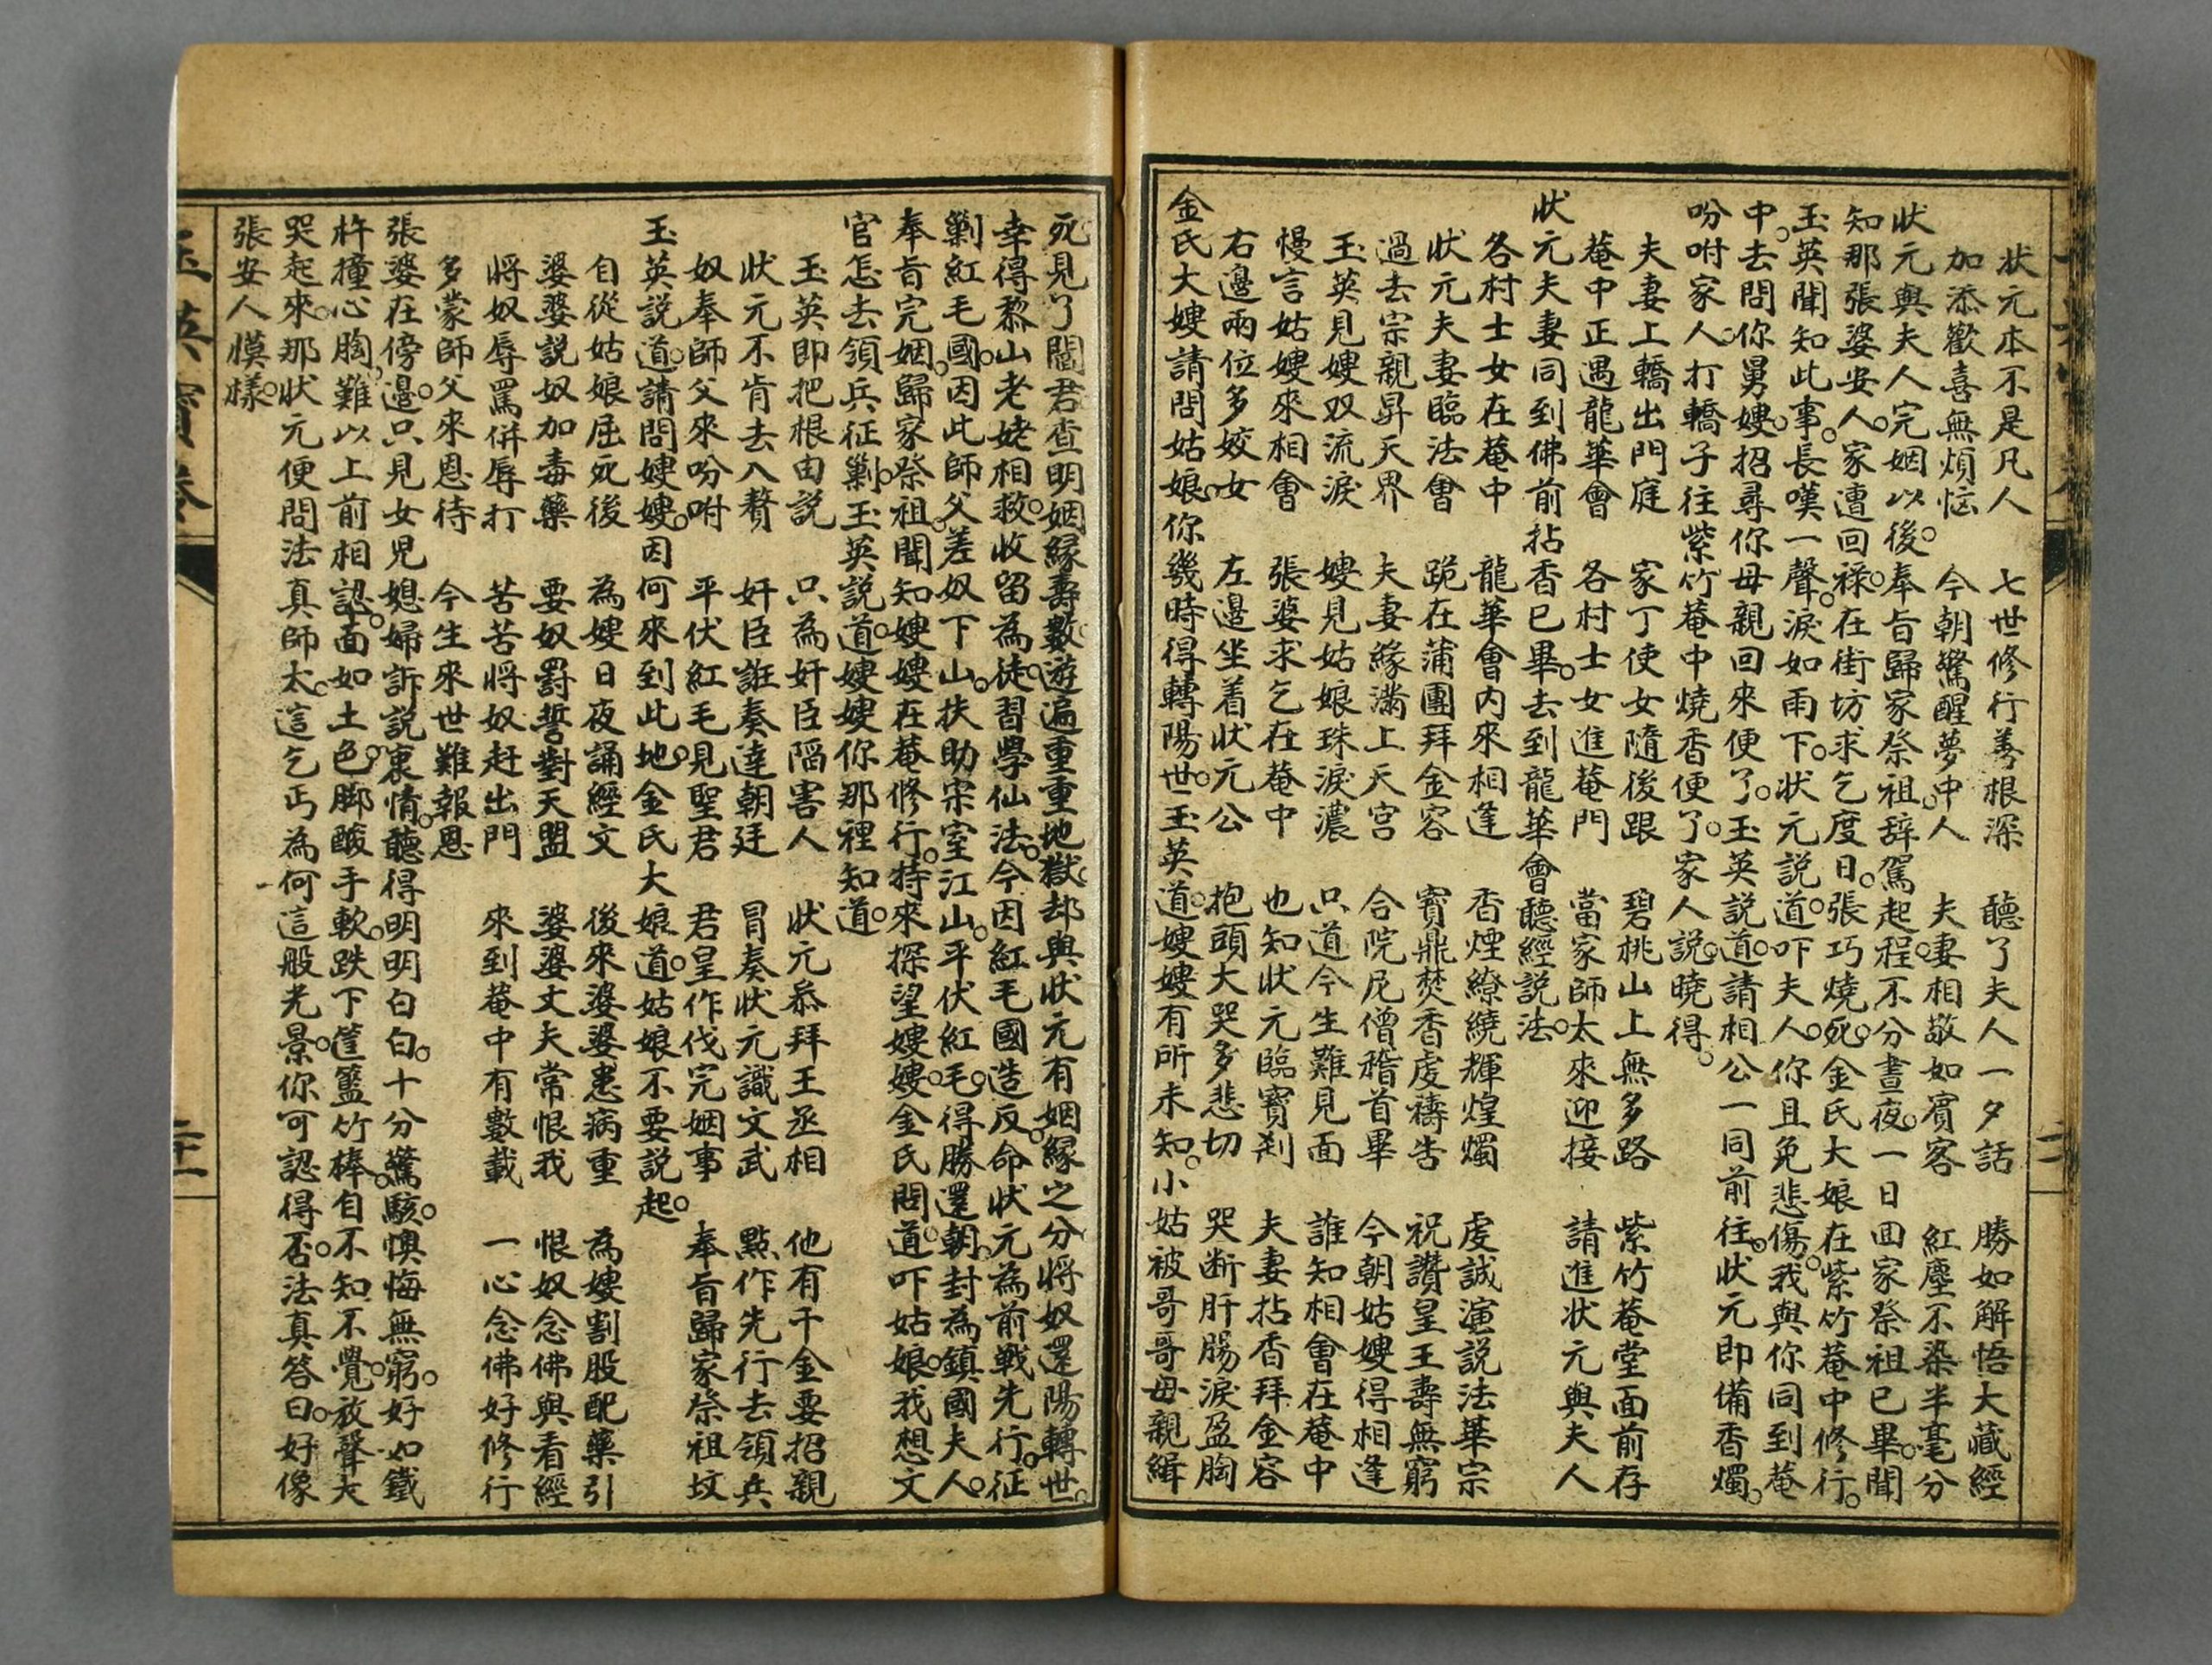 状元本不是凡人　七世修行善根深　聽了夫人一夕話　勝如解悟大藏經
加添歡喜無煩恼　今朝驚醒夢中人　夫妻相敬如賓客　紅塵不染半毫分
状元與夫人完姻以後。奉旨歸家祭祖。辞駕起程。不分晝夜。一日回家祭祖已畢。聞
知那張婆安人。家遭回祿。在街坊求乞度日。張巧燒死。金氏大娘在紫竹菴中修行。
玉英聞知此事。長嘆一聲。淚如雨下。状元説道。吓夫人。你且免悲傷。我與你同到菴
中。去問你舅嫂。招尋你母親回來便了。玉英説道。請相公一同前往。状元即備香燭。
吩咐家人。打轎子往紫竹菴中燒香便了。家人説。曉得。
夫妻上轎出門庭　家丁使女隨後跟　碧桃山上無多路　紫竹菴堂面前存
菴中正遇龍華會　各村士女進菴門　當家師太來迎接　請進状元與夫人
状元夫妻同到佛前拈香已畢。去到龍華會聽經説法。
各村士女在菴中　龍華會內來相逢　香煙繚繞輝煌燭　虔誠演説法華宗
状元夫妻臨法會　跪在蒲團拜金容　寶鼎焚香虔禱告　祝讚皇王壽無窮
過去宗親昇天界　夫妻緣滿上天宮　合院尼僧稽首畢　今朝姑嫂得相逢
玉英見嫂双流淚　嫂見姑娘珠淚濃　只道今生難見面　誰知相會在菴中
慢言姑嫂來相會　張婆求乞在菴中　也知状元臨寶刹　夫妻拈香拜金容
右邊兩位多姣女　左邊坐着状元公　抱頭大哭多悲切　哭断肝腸淚盈胸
金氏大嫂請問姑娘。你幾時得轉陽世。玉英道。嫂嫂有所未知。小姑被哥哥母親緝
死見了閻君。查明姻緣壽數。遊遍重重地獄。却與状元有姻緣之分。將奴還陽轉世。
幸得黎山老姥相救。收留為徒。習學仙法。今因紅毛國造反。命状元為前戦先行。征
剿紅毛國。因此師父差奴下山。扶助宋室江山。平伏紅毛。得勝還朝。封為鎮國夫人。
奉旨完姻。歸家祭祖。聞知嫂嫂在菴修行。特來探望嫂嫂。金氏問道。吓姑娘。我想文
官怎去領兵征剿。玉英説道。嫂嫂你那裡知道。
玉英即把根由説　只為奸臣陷害人　状元恭拜王丞相　他有千金要招親
状元不肯去入贅　奸臣誑奏達朝廷　冒奏状元識文武　點作先行去領兵
奴奉師父來吩咐　平伏紅毛見聖君　君皇作伐完姻事　奉旨歸家祭祖坟
玉英説道。請問嫂嫂。因何來到此地。金氏大娘道。姑娘不要説起。
自從姑娘屈死後　為嫂日夜誦經文　後來婆婆患病重　為嫂割股配藥引
婆婆説奴加毒藥　要奴罰誓對天盟　婆婆丈夫常恨我　恨奴念佛與看經
將奴辱罵併辱打　苦苦將奴赶出門　來到菴中有數載　一心念佛好修行
多蒙師父來恩待　今生來世難報恩
張婆在傍邊。只見女兒媳婦訴説衷情。聽得明明白白。十分驚駭。懊悔無窮。好如鐵
杵撞心胸。難以上前相認。面如土色。脚酸手軟。跌下筐籃竹棒。自不知不覺。放聲大
哭起來。那状元便問法真師太。這乞丐為何這般光景。你可認得否。法真答曰。好像
張安人模樣。
玉英寶卷
二十一